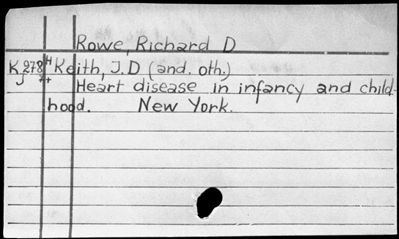 Rowe, Richard D
K 278 H Keith, J.D (and. oth.)
J Heart disease in infancy and child-
hood. New York.